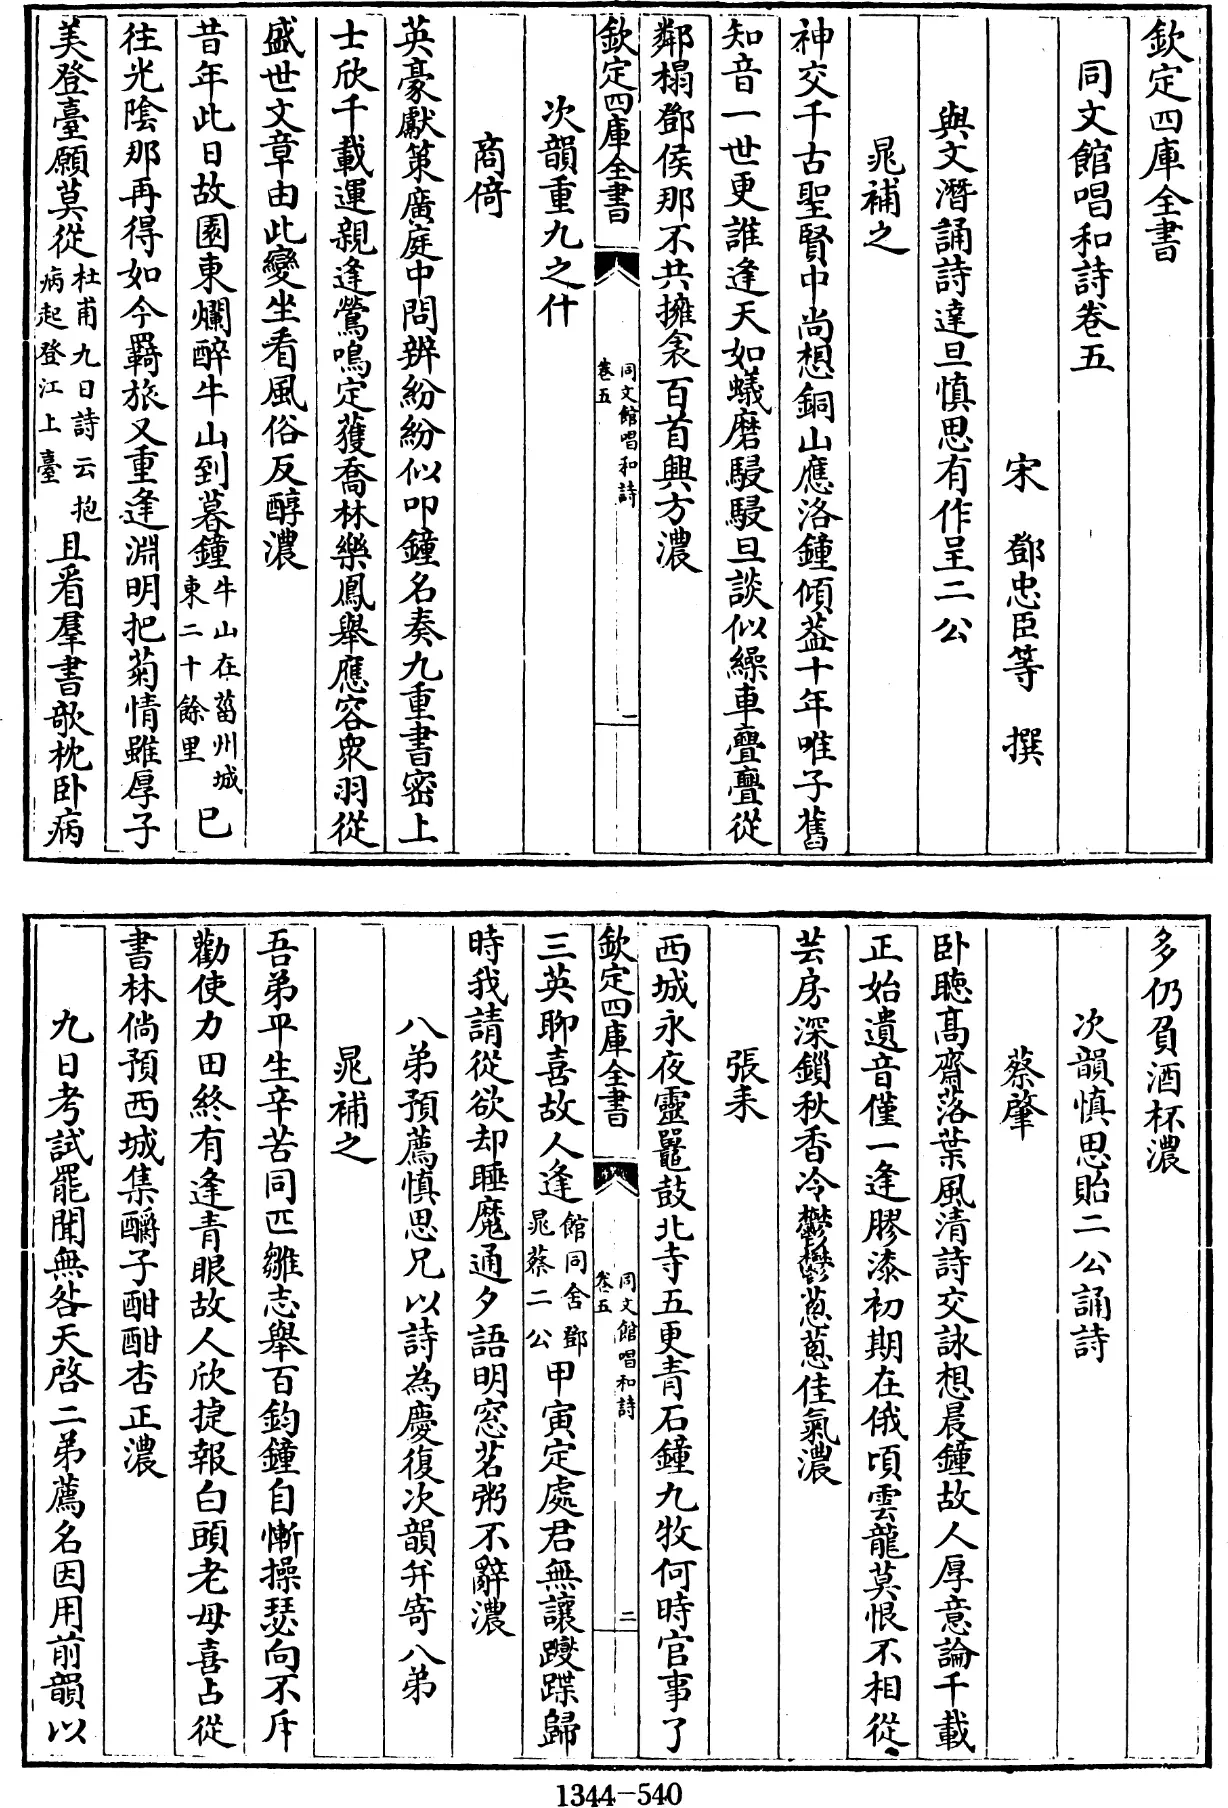 欽定四庫全書
同文館唱和詩卷五
宋 鄧忠臣等 撰
與文潛誦詩達旦慎思有作呈二公
晁補之
神交千古聖賢中尚想銅山應洛鐘傾葢十年唯子舊
知音一世更誰逢天如蟻磨駸駸旦談似繰車亹亹從
鄰榻鄧侯那不共擁衾百首興方濃
欽定四庫全書
同文館唱和詩
卷五
一
次韻重九之什
商倚
英豪獻策廣庭中問辨紛紛似叩鐘名奏九重書密上
士欣千載運親逢鶯鳴定獲喬林樂鳳舉應容衆羽從
盛世文章由此變坐看風俗反醇濃
昔年此日故園東爛醉牛山到暮鐘牛山在菑州城東二十餘里已
往光陰那再得如今羇旅又重逢淵明把菊情雖厚子
美登臺願莫從杜甫九日詩云抱病起登江上臺且看羣書欹枕卧病
多仍負酒杯濃
次韻慎思貽二公誦詩
蔡肇
卧聴髙齋落葉風清詩交詠想晨鐘故人厚意論千載
正始遺音僅一逢膠漆初期在俄頃雲龍莫恨不相從
芸房深鎻秋香冷鬱鬱葱葱佳氣濃
張耒
西城永夜靈鼉鼓北寺五更青石鐘九牧何時官事了
欽定四庫全書
同文館唱和詩
卷五
二
三英聊喜故人逢館同舍鄧晁蔡二公甲寅定處君無讓躞蹀歸
時我請從欲却睡魔通夕語明窓茗粥不辭濃
八弟預薦慎思兄以詩為慶復次韻幷寄八弟
晁補之
吾弟平生辛苦同匹雛志舉百鈞鐘自慚操瑟向不斥
勸使力田終有逢青眼故人欣捷報白頭老母喜占從
書林倘預西城集釂子酣酣杏正濃
九日考試罷聞無咎天啓二弟薦名因用前韻以
1344-540